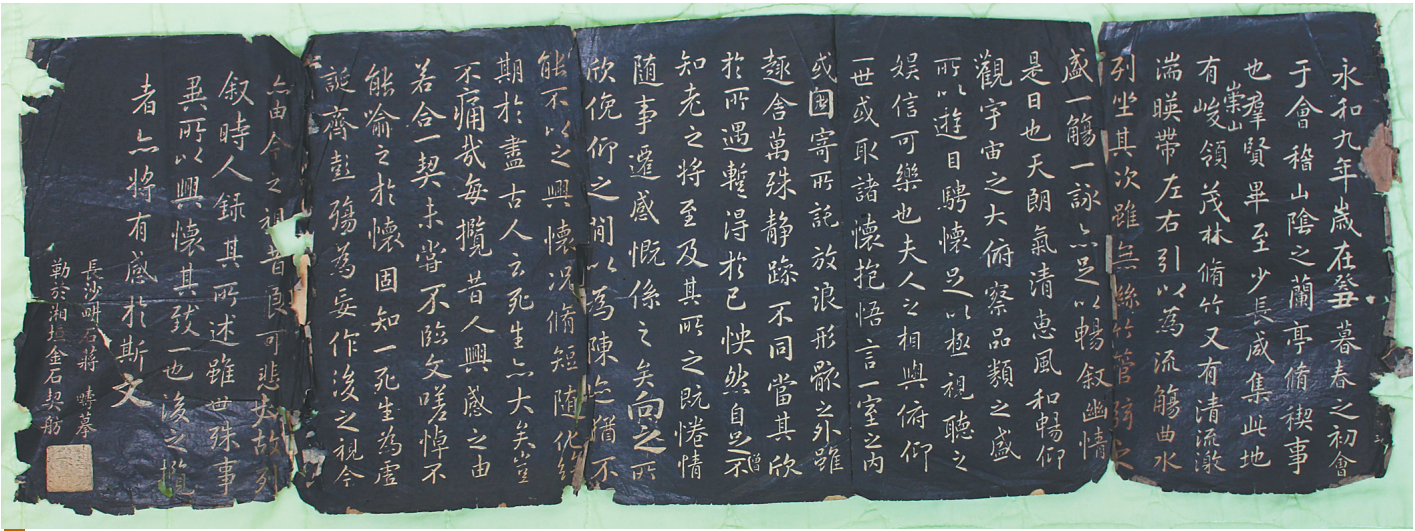 永和九年歲在癸丑暮春之初會
于會稽山陰之蘭亭脩稧事
也羣賢畢至少長咸集此地
有崇山峻領茂林脩竹又有清流激
湍暎帶左右引以為流觴曲水
列坐其次雖無絲竹管弦之
盛一觴一詠亦足以暢叙幽情
是日也天朗氣清惠風和暢仰
觀宇宙之大俯察品類之盛
所以遊目騁懷足以極視聽之
娛信可樂也夫人之相與俯仰
一世或取諸懷抱悟言一室之內
或因寄所託放浪形骸之外雖
趣舍萬殊静躁不同當其欣
於所遇暫得於己怏然自足不
知老之將至及其所之既惓情
随事遷感慨係之矣向之所
欣俛仰之閒以為陳迹猶不
能不以之興懷况脩短随化終
期於盡古人云死生亦大矣豈
不痛哉每攬昔人興感之由
若合一契未嘗不臨文嗟悼不
能喻之於懷固知一死生為虛
誕齊彭殤為妄作後之視今
亦由今之視昔 悲夫故列
叙時人録其所述雖世殊事
異所以興懷其致一也後之攬
者亦將有感於斯文
長沙 石蔣 摹
勒於湘 金石契舫